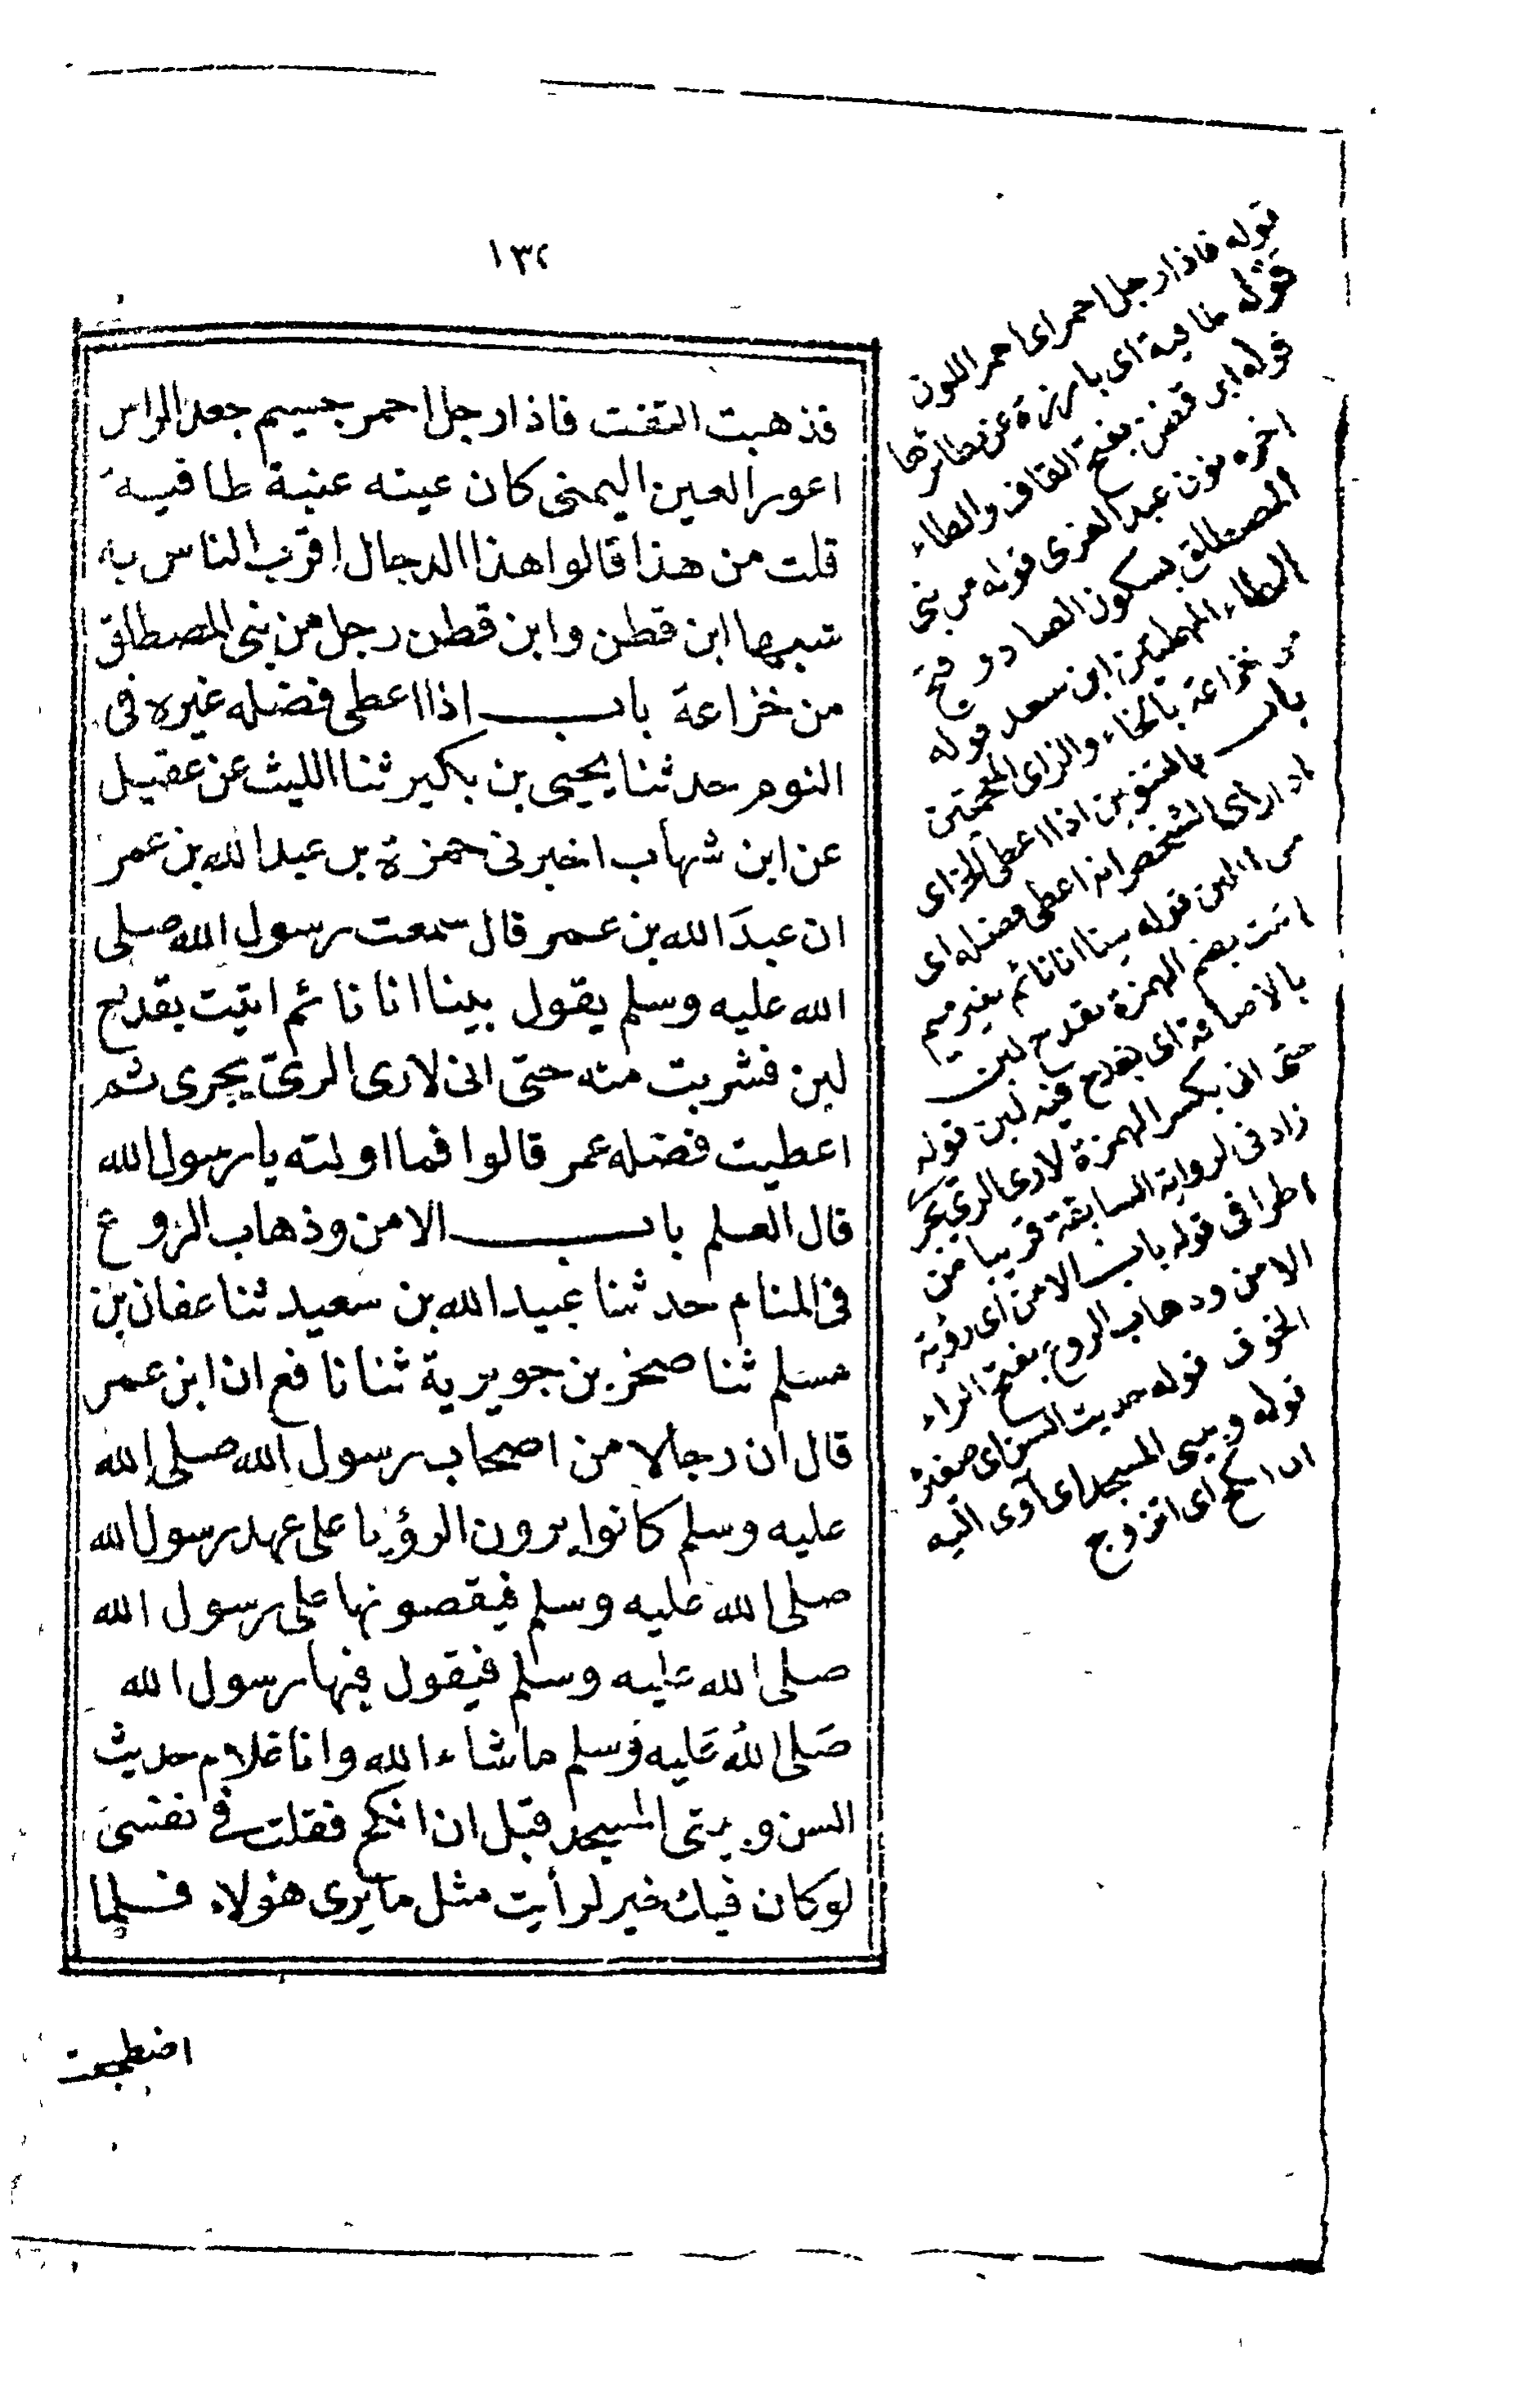 ١٣٢
فذهبت التفت فاذا رجل احمر جسيم جعد الراس
اعور العين اليمنى كان عينه عنبة طافية
قلت من هذا قالوا هذا الدجال اقرب الناس به
شبها ابن قطن وابن قطن رجل من بنى المصطلق
من خزاعة باب اذا اعطى فضله غيره فى
النوم حدثنا يحيى بن بكير ثنا الليث عن عقيل
عن ابن شهاب اخبرنى حمزة بن عبد الله بن عمر
ان عبد الله بن عمر قال سمعت رسول الله صلى
الله عليه وسلم يقول بينا انا نائم اتيت بقدح
لبن فشربت منه حتى انى لارى الرى يجرى ثم
اعطيت فضله عمر قالوا فما اولته يا رسول الله
قال العلم باب الامن وذهاب الروع
فى المنام حدثنا عبيد الله بن سعيد ثنا عفان بن
مسلم ثنا صخر بن جويرية ثنا نافع ان ابن عمر
قال ان رجالا من اصحاب رسول الله صلى الله
عليه وسلم كانوا يرون الرؤيا على عهد رسول الله
صلى الله عليه وسلم فيقصونها على رسول الله
صلى الله عليه وسلم فيقول فيها رسول الله
صَلى اللهُ عَليه وَسلم ما شاء الله وانا غلام حديث
السن وبيتى المسجد قبل ان انكح فقلت فى نفسى
لو كان فيك خير لرأيت مثل ما يرى هؤلاء فلما
اضطجعت
قوله فاذا رجل احمر اى احمر اللون
قوله طافية اى بارزة عن نظائرها
قوله ابن قطن بفتح القاف والطاء
اخره نون عبد العزى قوله من بنى
المصطلق بسكون الصاد وفتح
الطاء المهملتين ابن سعد قوله
من خزاعة بالخاء والزاى المعجمتين
باب بالتنوين اذا اعطى اى
اذا راى الشخص انه اعطى فضله اى
من اللبن قوله بينا انا نائم بغير ميم
اتيت بضم الهمزة بقدح لبن
بالاضافة اى بقدح فيه لبن قوله
حتى انى بكسر الهمزة لارى الرى يجر
زاد فى الرواية السابقة قريبا من
اطرافى قوله باب الامن اى رؤية
الامن وذهاب الروع بفتح الراء
الخوف قوله حديث السن اى صغير
قوله وبيتى المسجد اى آوى اليه
ان انكح اى اتزوج